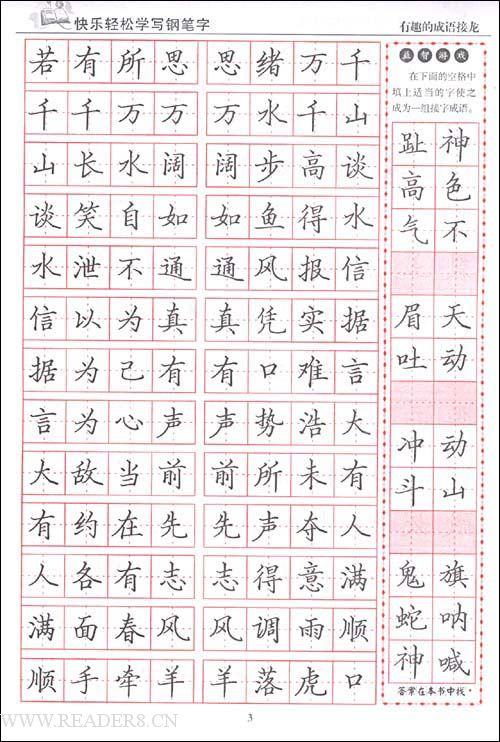 快乐轻松学写钢笔字
有趣的成语接龙
若有所思 思绪万千
千千万万 万水千山
山长水阔 阔步高谈
谈笑自如 如鱼得水
水泄不通 通风报信
信以为真 真凭实据
据为己有 有口难言
言为心声 声势浩大
大敌当前 前所未有
有约在先 先声夺人
人各有志 志得意满
满面春风 风调雨顺
顺手牵羊 羊落虎口
益智游戏
在下面的空格中
填上适当的字使之
成为一组接字成语。
趾神
高色
气不
眉天
吐动
冲动
斗山
鬼旗
蛇呐
神喊
答案在本书中找。
3
WWW.READERS8.CN